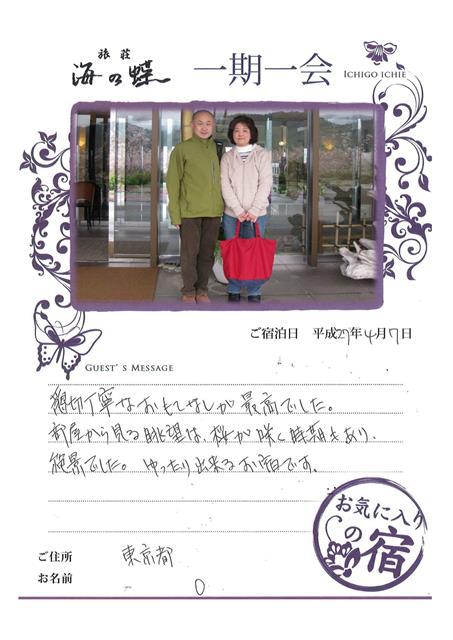 旅荘
海の蝶
一期一会
ICHIGO ICHIE
ご宿泊日 平成27年4月17日
GUEST'S MESSAGE
親切丁寧なおもてなしが最高でした。
部屋から見る眺望は、桜が咲く時期もあり、
絶景でした。ゆったり出来るお宿です。
お気に入り
の宿
ご住所 東京都
お名前 O